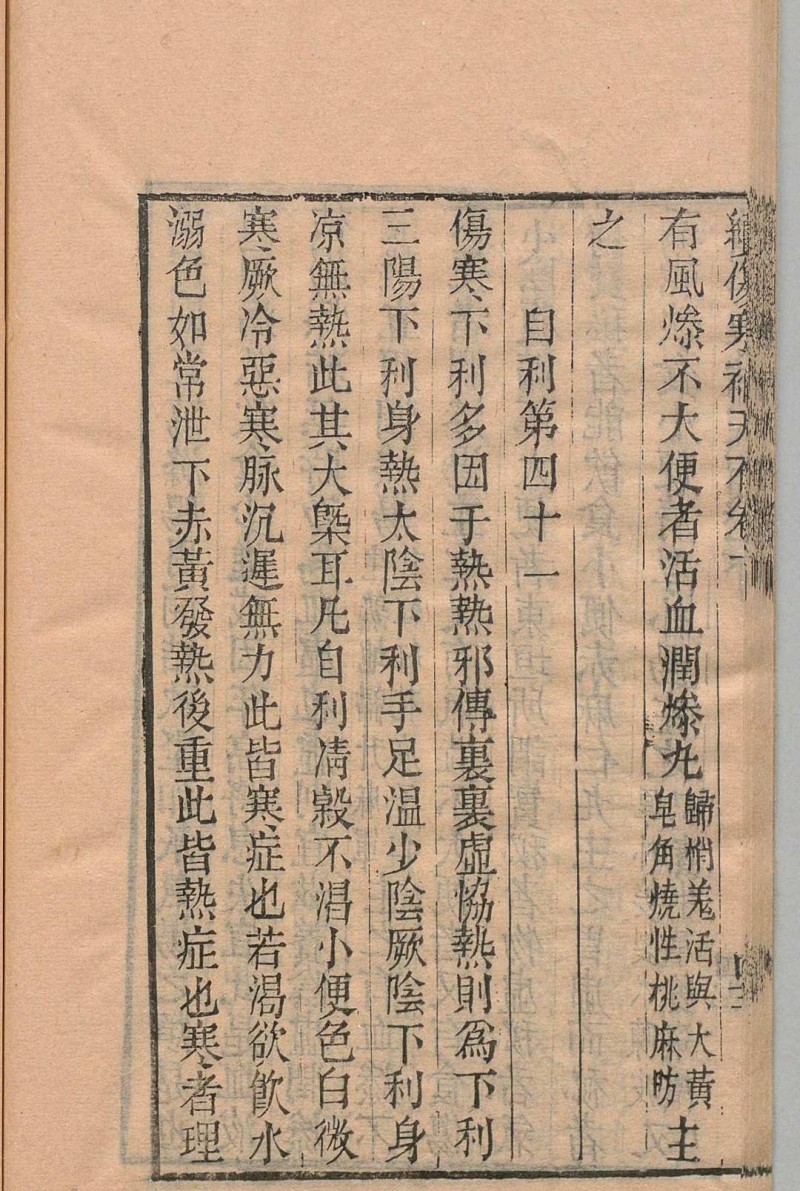 續傷寒補天石卷一
有風燥不大便者活血潤燥丸歸梢羗活與大黃皂角燒性桃麻防主
之
自利第四十一
傷寒下利多因于熱熱邪傳裏裏虛恊熱則爲下利
三陽下利身熱太陰下利手足温少陰厥陰下利身
凉無熱此其大槩耳凢自利凊穀不渴小便色白微
寒厥冷惡寒脉沉遲無力此皆寒症也若渴欲飮水
溺色如常泄下赤黃發熱後重此皆熱症也寒者理